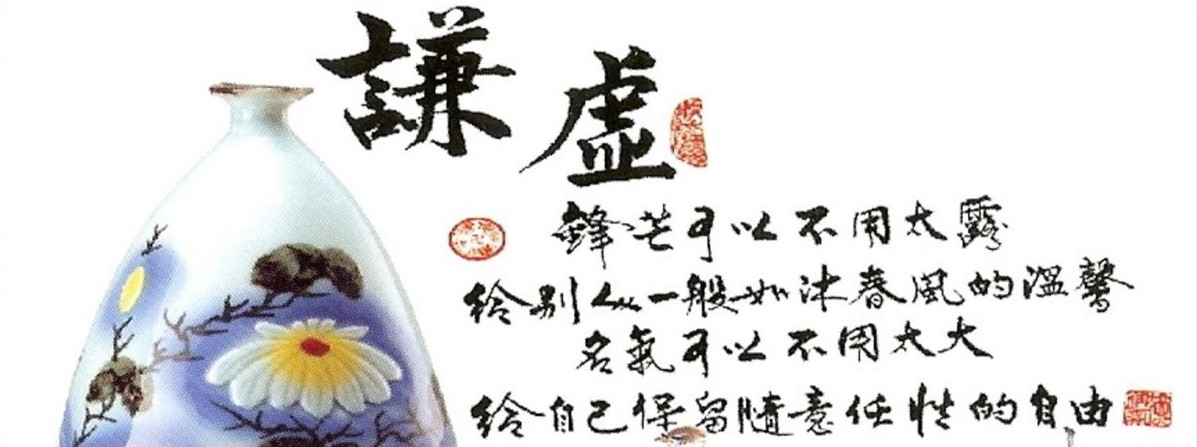 謙虛
鋒芒可以不用太露
给别人一般如沐春風的溫馨
名氣可以不用太大
给自己保留隨意任性的自由